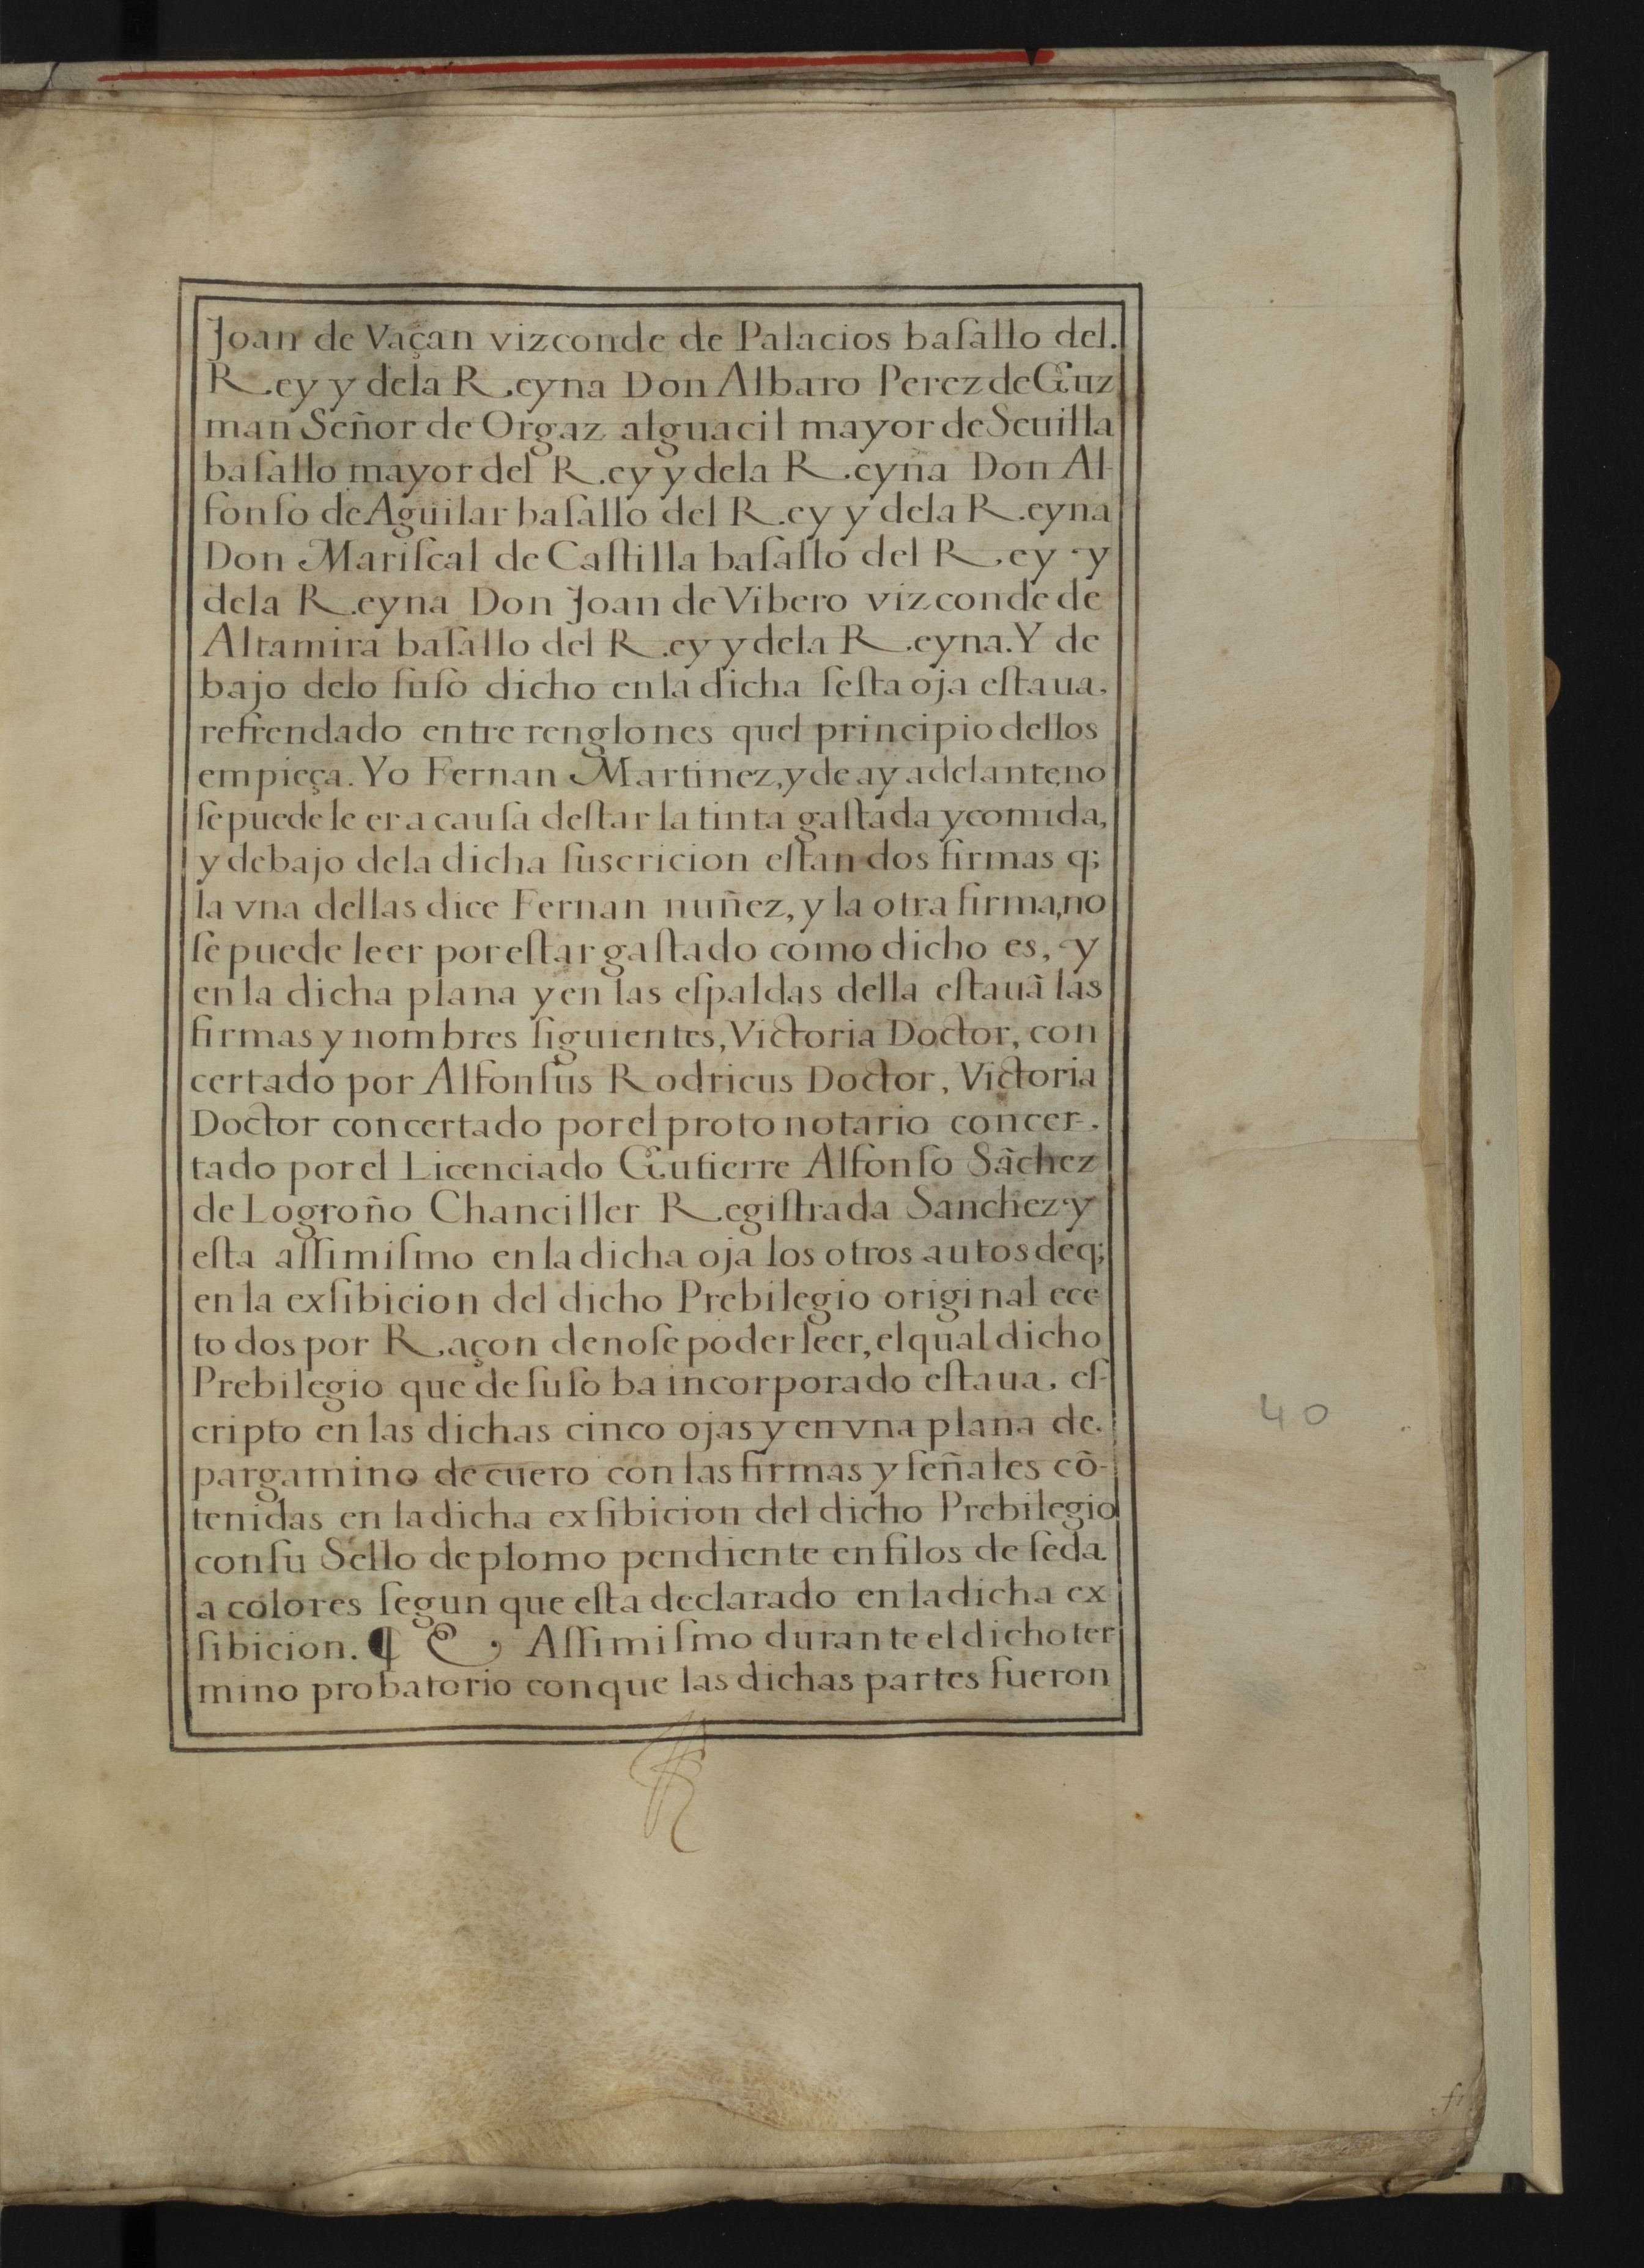 Joan de Vaçan vizconde de Palacios baſallo del.
Rey y dela Reyna Don Albaro Perez de Guz
man Señor de Orgaz alguacil mayor de Seuilla
baſallo mayor del Rey y dela Reyna Don Al-
fonſo de Aguilar baſallo del Rey y dela Reyna
Don Mariſcal de Caſtilla baſallo del Rey y
dela Reyna Don Joan de Vibero vizconde de
Altamira baſallo del Rey y dela Reyna. Y de
bajo delo ſuſo dicho en la dicha ſeſta oja eſtaua.
refrendado entre renglones quel principio dellos
empieça. Yo Fernan Martinez, y de ay adelante, no
ſe puede leer a cauſa deſtar la tinta gaſtada y comida,
y debajo dela dicha ſuscricion eſtan dos firmas q;
la vna dellas dice Fernan nuñez, y la otra firma, no
ſe puede leer por eſtar gaſtado como dicho es, y
en la dicha plana y en las eſpaldas della eſtauã las
firmas y nombres ſiguientes, Victoria Doctor, con
certado por Alfonſus Rodricus Doctor, Victoria
Doctor concertado por el protonotario concer-
tado por el Licenciado Gutierre Alfonſo Sãchez
de Logroño Chanciller Regiſtrada Sanchez y
eſta aſſimiſmo en la dicha oja los otros autos de q;
en la exſibicion del dicho Prebilegio original ece
to dos por Raçon de no ſe poder leer, el qual dicho
Prebilegio que de ſuſo ba incorporado eſtaua. eſ-
cripto en las dichas cinco ojas y en vna plana de.
pargamino de cuero con las firmas y ſeñales cõ-
tenidas en la dicha exſibicion del dicho Prebilegio
con ſu Sello de plomo pendiente en filos de ſeda
a colores ſegun que eſta declarado en la dicha ex
ſibicion. ¶ Aſſimiſmo durante el dicho ter
mino probatorio con que las dichas partes fueron
40